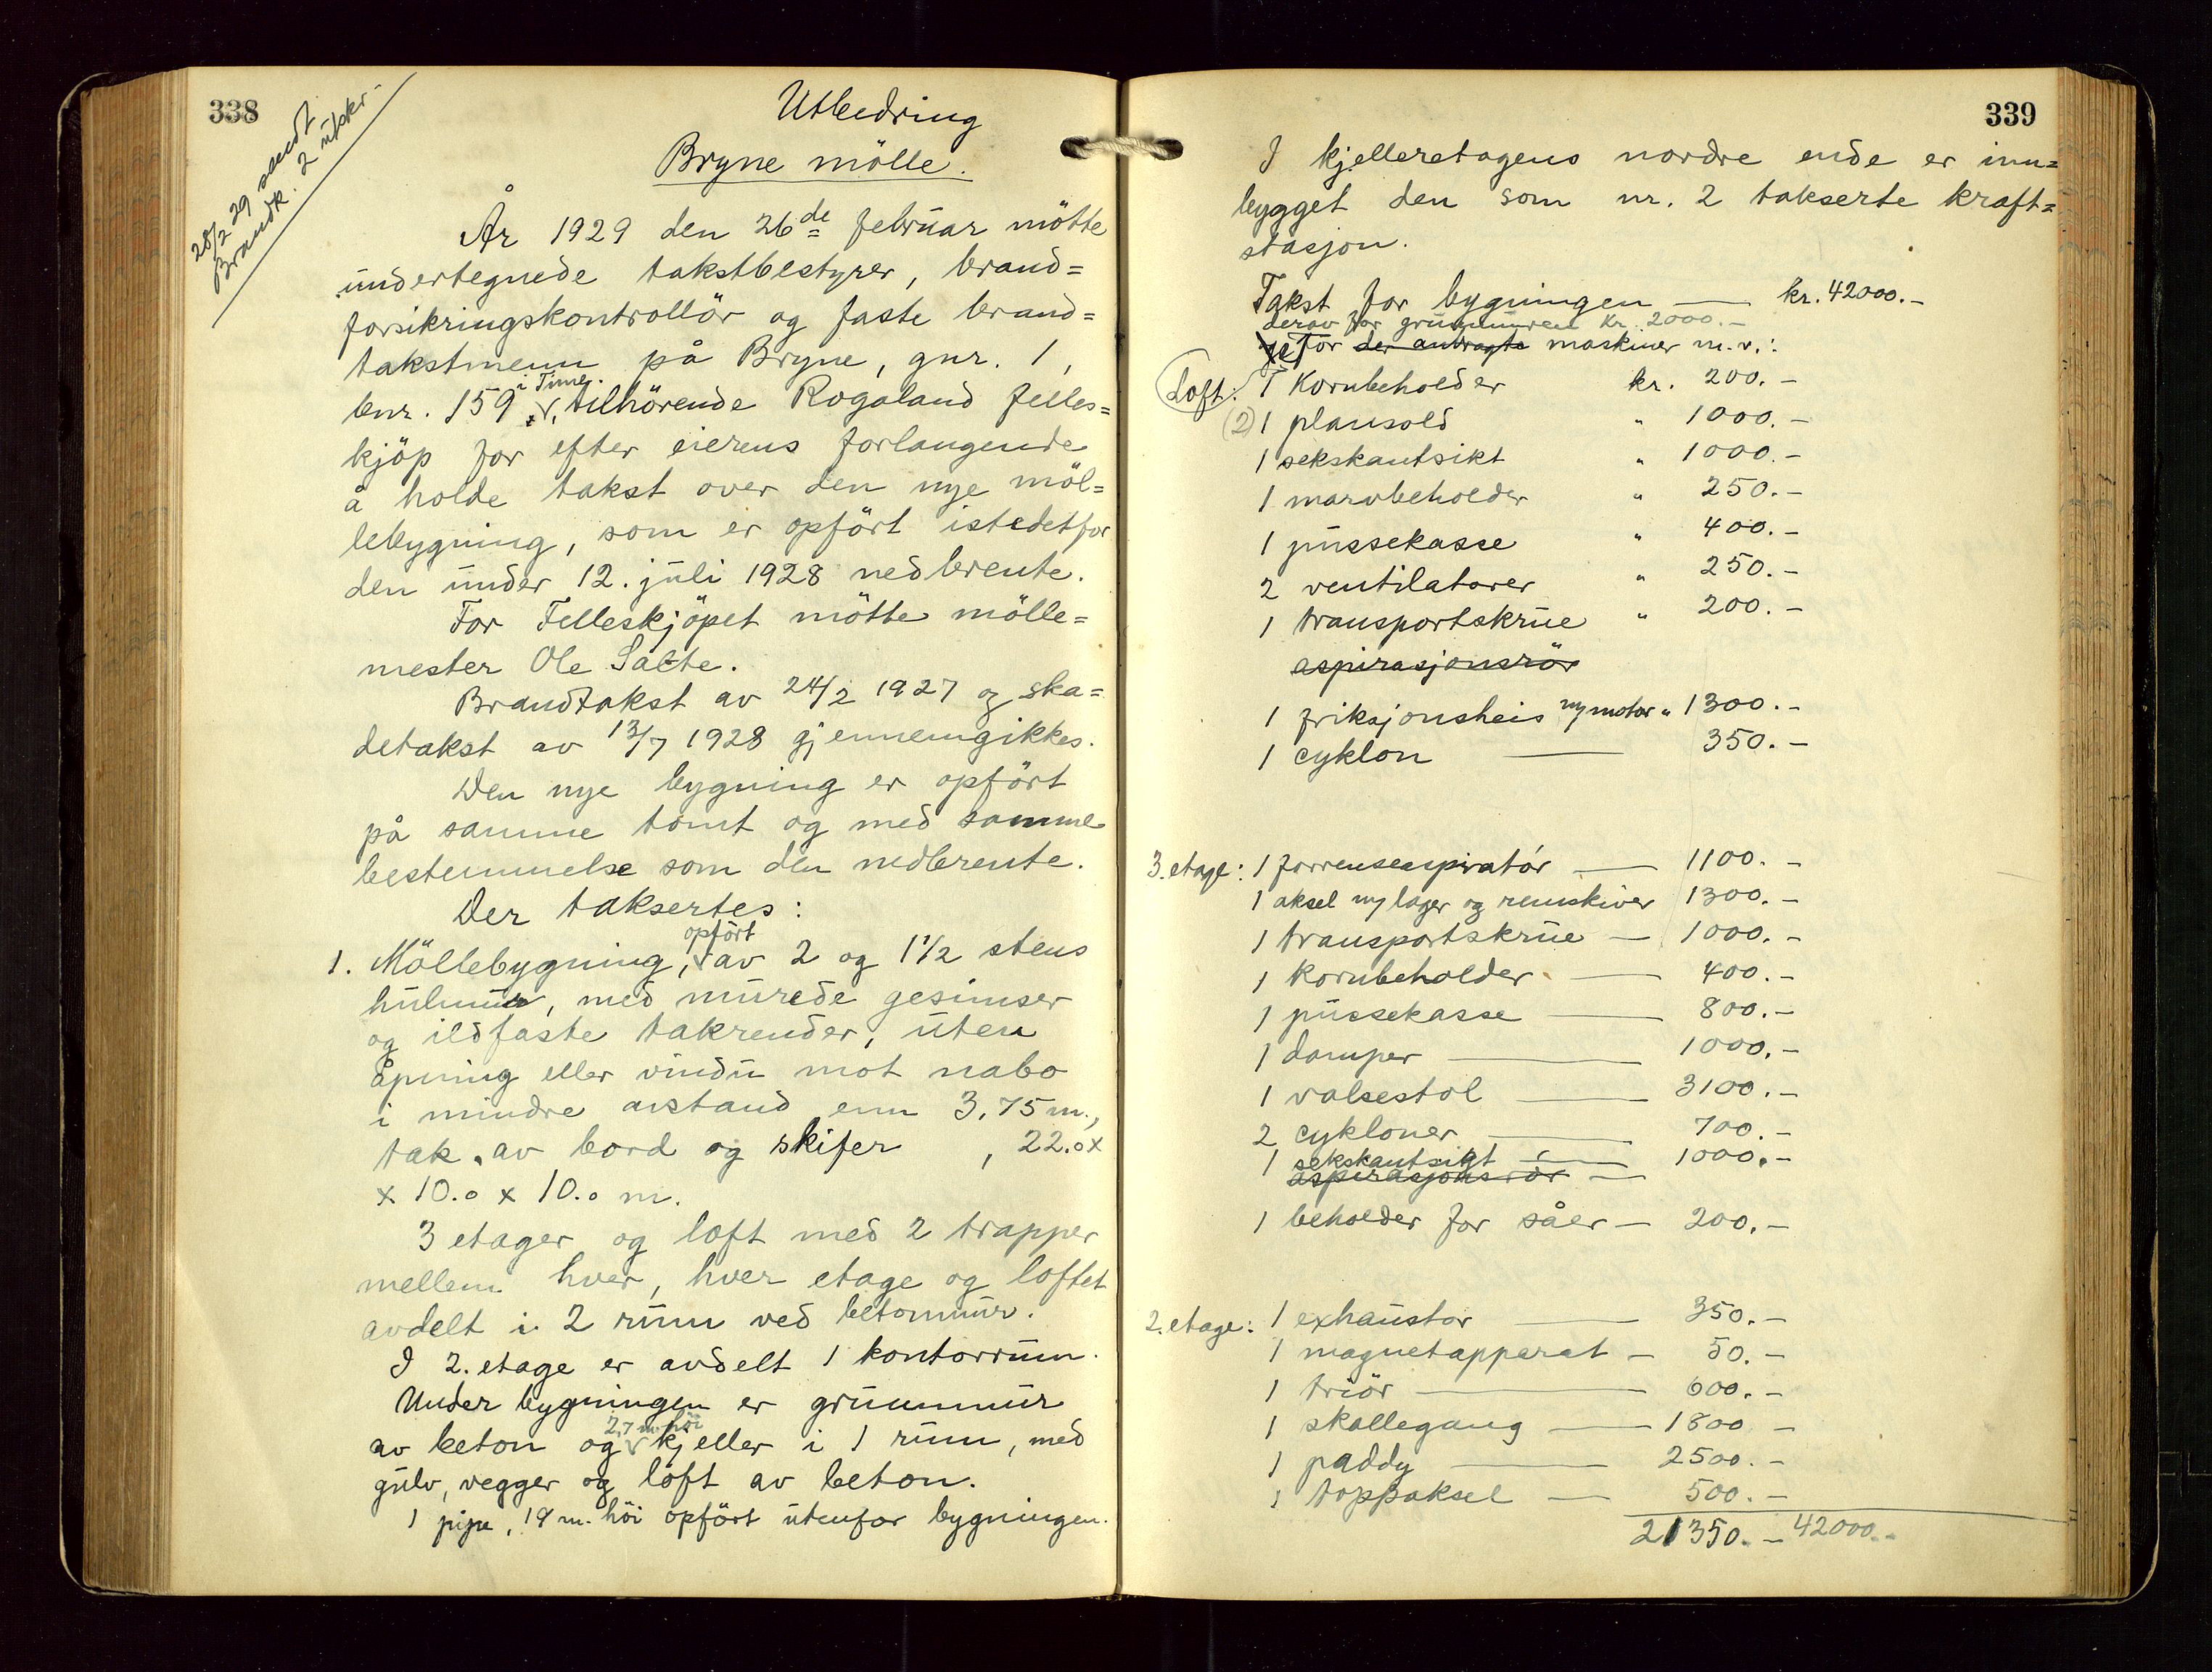 338
28/2 29 sendt
Brandk. 2 utskr.
Utbedring
Bryne mölle.
År 1929 den 26de februar mötte
undertegnede takstbestyrer, brand=
forsikringskontrollör og faste brand=
takstmenn på Bryne, gnr. 1,
i Time.
bnr. 159, tilhörende Rogaland felles=
kjöp for efter eierens forlangende
å holde takst over den nye möl=
lebygning, som er opfört istedetfor
den under 12. juli 1928 nedbrente.
For Felleskjöpet mötte mölle=
mester Ole Salte.
Brandtakst av 24/2 1927 og ska=
detakst av 13/7 1928 gjennemgikkes.
Den nye bygning er opfört
på samme tomt og med samme
bestemmelse som den nedbrente.
Der taksertes:
opfört
1. Möllebygning, av 2 og 1½ stens
hulmur, med murede gesimser
og ildfaste takrender, uten
åpning eller vindu mot nabo
i mindre avstand enn 3,75 m.,
tak av bord og skifer , 22.0 x
x 10.0 x 10.0 m.
3 etager og loft med 2 trapper
mellem hver, hver etage og loftet
avdelt i 2 rum ved betonmur.
I 2. etage er avdelt 1 kontorrum.
Under bygningen er grunnmur
2,7 m. höi
av beton og kjeller i 1 rum, med
gulv, vegger og loft av beton.
1 pipe, 19 m. höi opfört utenfor bygningen.
339
I kjelleretagens nordre ende er inn=
bygget den som nr. 2 takserte kraft=
stasjon.
Takst for bygningen — kr. 42000.-
derav for grunnmuren kr. 2000.-
For der anbragte maskiner m.v.:
Loft: 1 Kornbeholder kr. 200.-
(2) 1 plansold " 1000.-
1 sekskantsikt " 1000.-
1 marvbeholder " 250.-
1 pussekasse " 400.-
2 ventilatorer " 250.-
1 transportskrue " 200.-
aspirasjonsrör
1 friksjonsheis m/motor " 1300.-
1 cyklon — 350.-
3. etage: 1 forrenseaspiratór — 1100.-
1 aksel m/ lager og remskiver 1300.-
1 transportskrue — 1000.-
1 kornbeholder — 400.-
1 pussekasse — 800.-
1 damper — 1000.-
1 valsestol — 3100.-
2 cykloner — 700.-
1 sekskantsigt — 1000.-
aspirasjonsrör —
1 beholder for såer — 200.-
2. etage: 1 exhaustor — 350.-
1 magnetapparat — 50.-
1 triör — 600.-
1 skallegang — 1800.-
1 paddy — 2500.-
1 toppaksel — 500.-
21350.- 42000.-